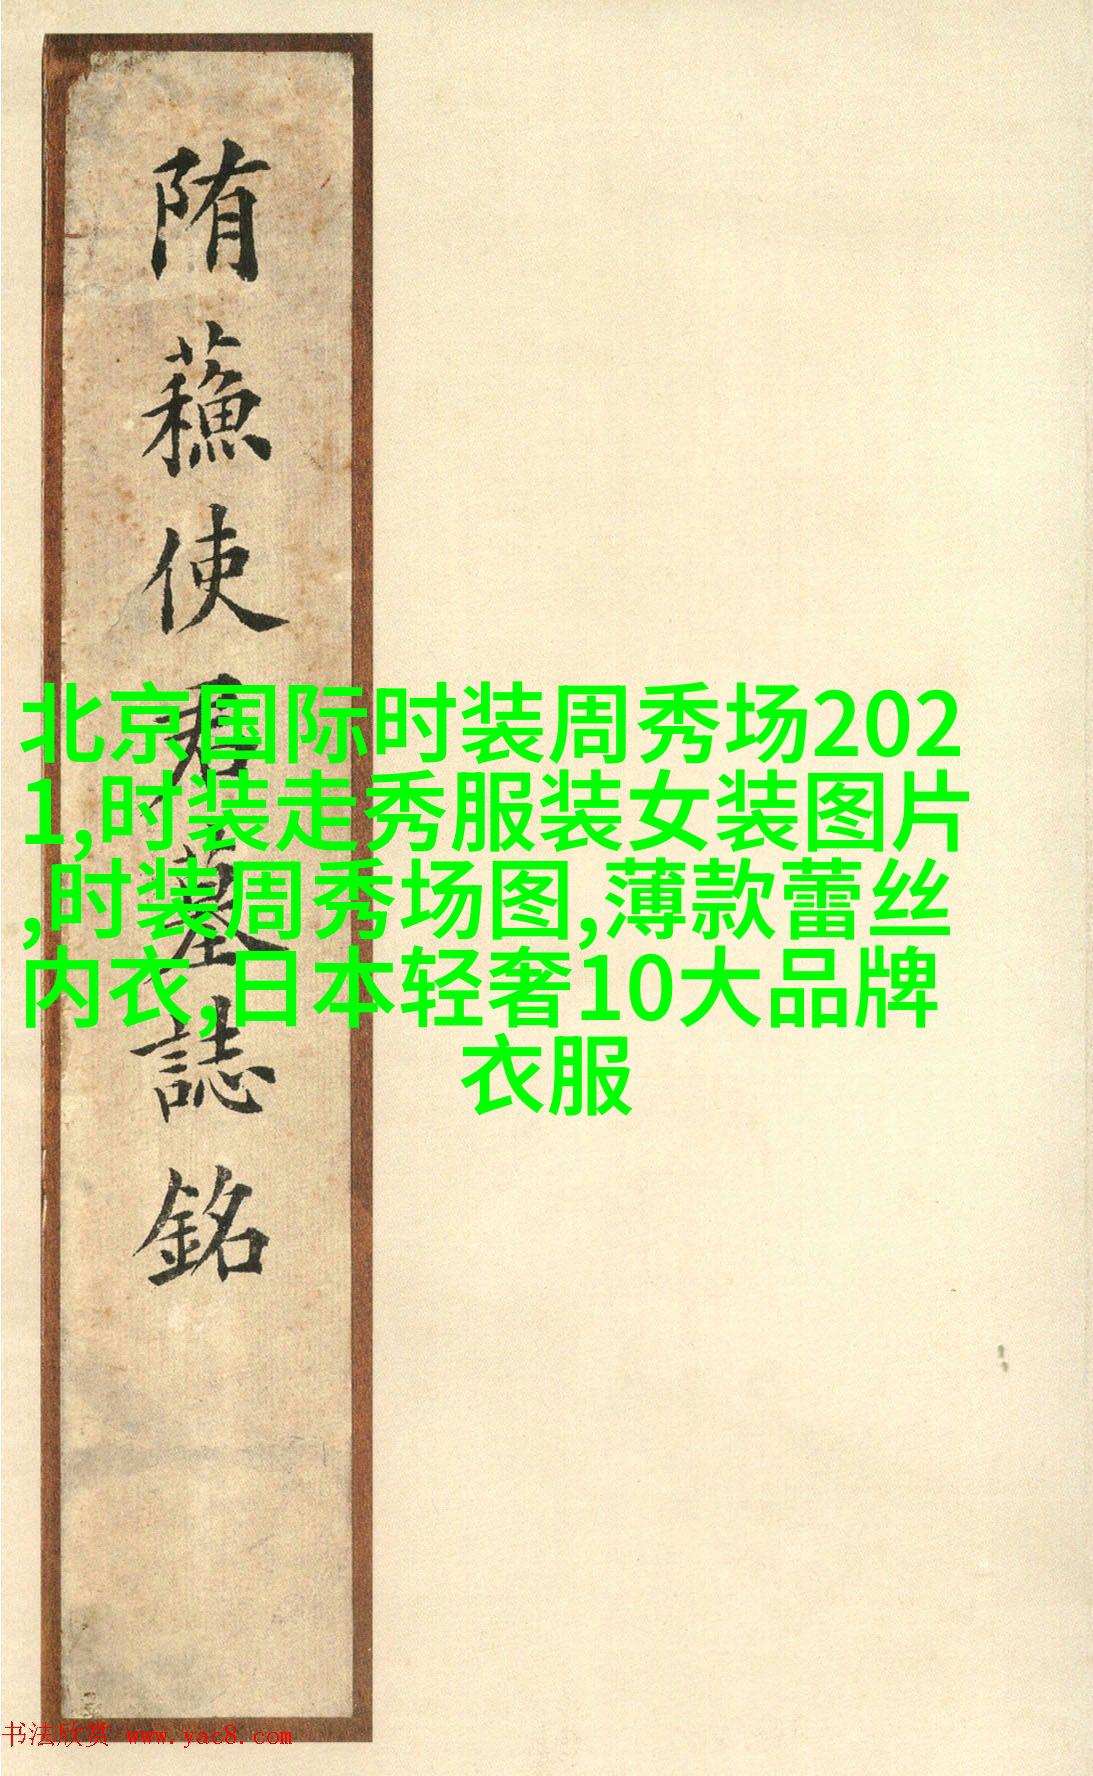 隋蘓使君墓誌銘
北京国际时装周秀场202
1,时装走秀服装女装图片
,时装周秀场图,薄款蕾丝
内衣,日本轻奢10大品牌
衣服
书法欣赏 www.yac8.com